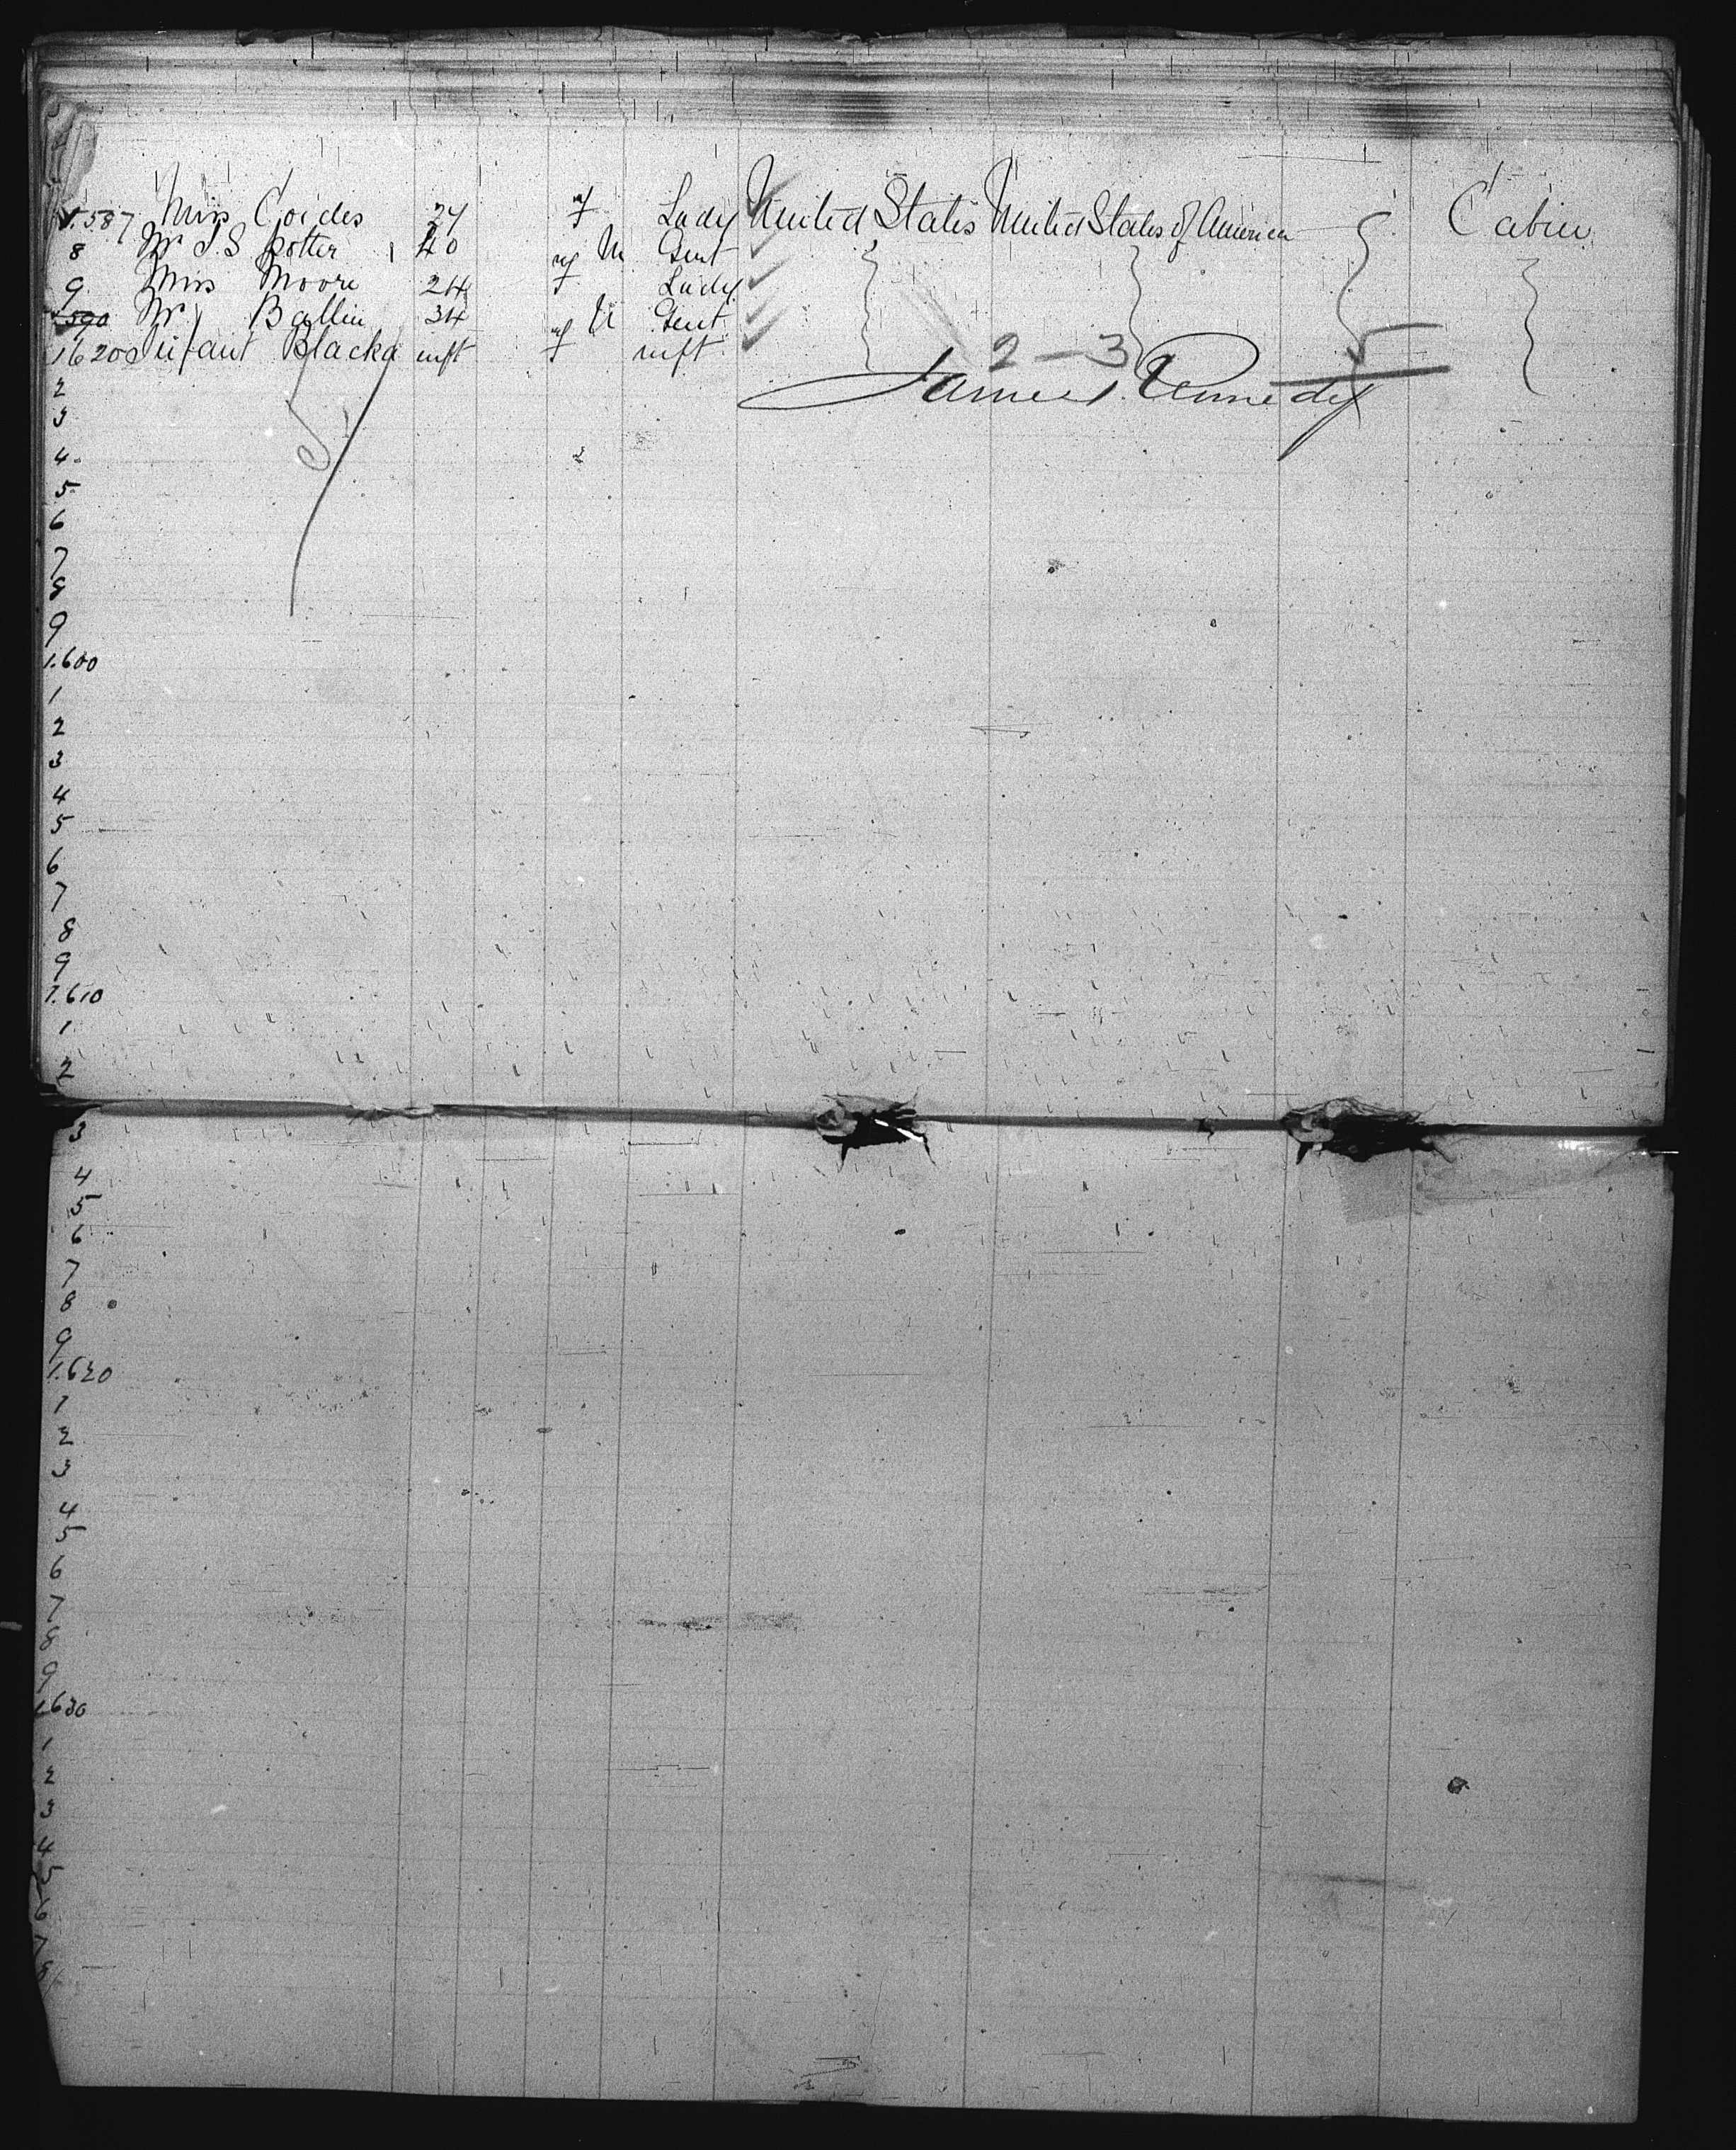 1.587 Miss Coides 24 f Lady United States United States of America Cabin
8 Mr J. S Potter 40 M Gent
9 Miss Moore 24 f Lady
1590 Mr Ballin 34 M Gent
1620 Infant Blacka inft f inft
2 - 3
5
2 James Kennedy
3
4
5
6
7
8
9
1.600
1
2
3
4
5
6
7
8
9
1.610
1
2
3
4
5
6
7
8
9
1.620
1
2
3
4
5
6
7
8
9
1630
1
2
3
4
5
6
7
8